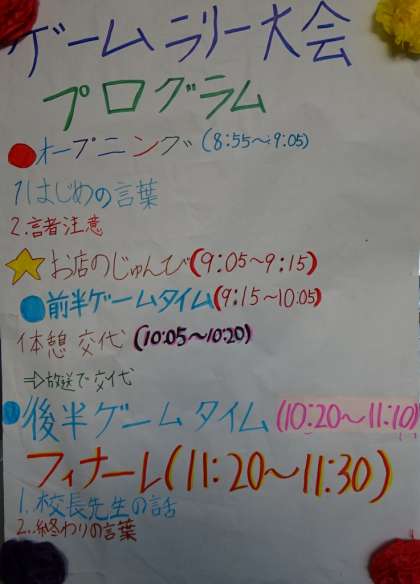 ゲームラリー大会
プログラム
オープニング(8:55〜9:05)
1はじめの言葉
2.諸注意
お店のじゅんび(9:05〜9:15)
前半ゲームタイム(9:15〜10:05)
休憩 交代 (10:05〜10:20)
⇒放送で交代
後半ゲームタイム(10:20〜11:10)
フィナーレ(11:20〜11:30)
1.校長先生の話
2.終わりの言葉